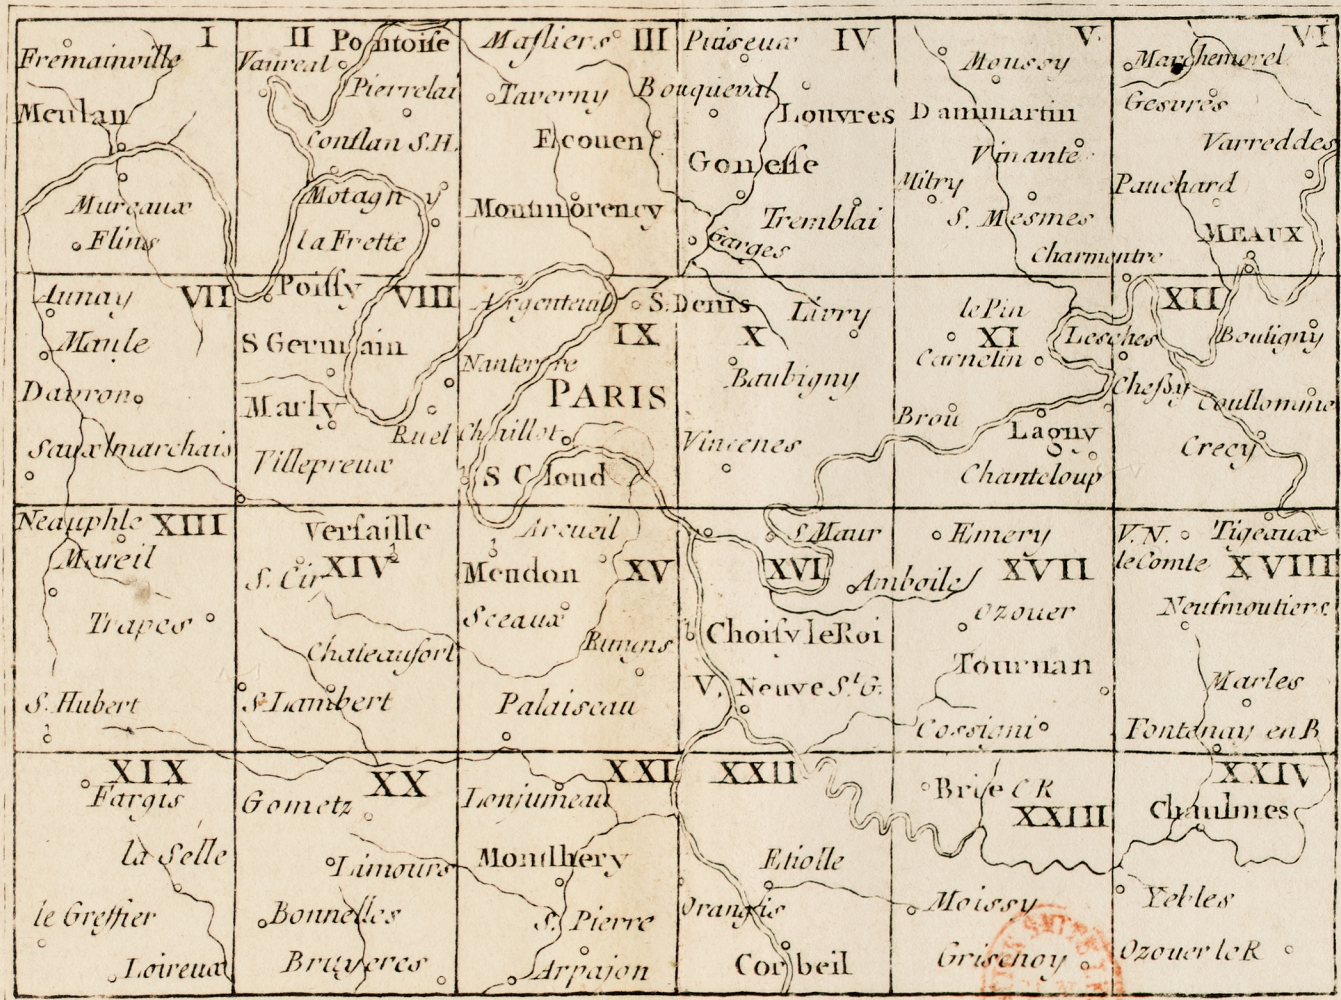 I
Fremainville
Meulan
Mureaux
Flins
II Pontoise
Vaureal
Pierrelai
Conflan S.H.
Motagny
la Frette
Masliers III
Taverny
Ecouen
Montmorency
Puiseux IV
Bouqueval
Louvres
Gonesse
Tremblai
Garges
V
Moussy
Dammartin
Vinante
Mitry
S. Mesmes
Charmentre
VI
Marchemorel
Gesvres
Varreddes
Pauchard
MEAUX
Aunay VII
Maule
Davron
Sauxmarchais
Poissy VIII
S Germain
Marly
Ruel
Villepreux
Argenteuil
IX
Nanterre
PARIS
Chaillot
S Cloud
S. Denis
Livry
X
Baubigny
Vincenes
le Pin
XI
Carnetin
Brou
Lagny
Chanteloup
XII
Lesches
Boutigny
Chessy
Coullomme
Crecy
Neauphle XIII
Mareil
Trapes
S. Hubert
Versaille
S. Cir XIV
Chateaufort
S. Lambert
Arcueil
Meudon XV
Sceaux
Rungis
Palaiseau
S Maur
XVI
Amboile
Choisy le Roi
V. Neuve St G.
Emery
XVII
Ozouer
Tournan
Cossigni
V.N. Tigeaux
le Comte XVIII
Neufmoutiers
Marles
Fontenay en B
XIX
Fargis
la Selle
le Greffier
Loireux
XX
Gometz
Limours
Bonnelles
Bruyeres
XXI
Lonjumeau
Montlhery
S. Pierre
Arpajon
XXII
Etiolle
Orangis
Corbeil
Brie C R
XXIII
Moissy
Grisenoy
XXIV
Chaulmes
Yebles
Ozouer le R